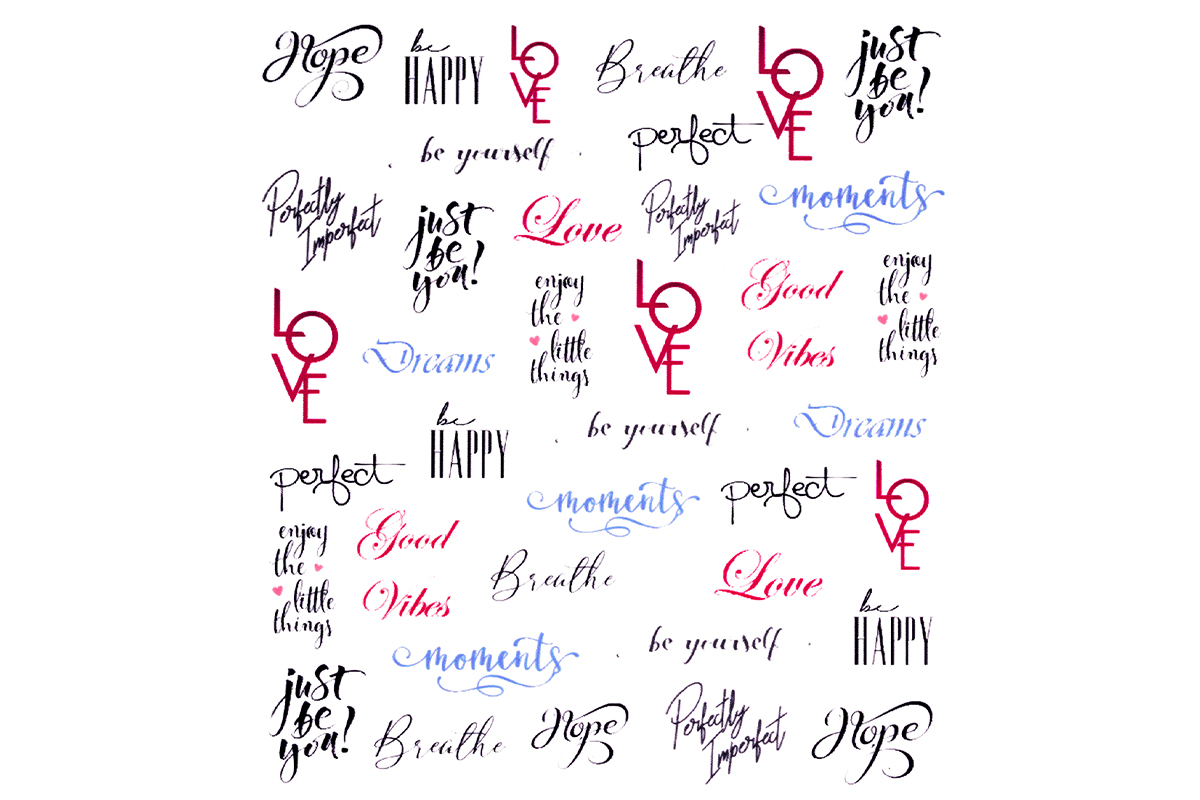 Hope
be
HAPPY
LO
VE
Breathe
LO
VE
just
be
you!
perfect
be yourself
Perfectly
Imperfect
just
be
you!
Love
Perfectly
Imperfect
moments
enjoy
the
little
things
LO
VE
Good
Vibes
enjoy
the
little
things
LO
VE
Dreams
be
HAPPY
be yourself
Dreams
perfect
moments
perfect
LO
VE
enjoy
the
little
things
Good
Vibes
Breathe
Love
be
HAPPY
moments
be yourself
just
be
you!
Breathe
Hope
Perfectly
Imperfect
Hope